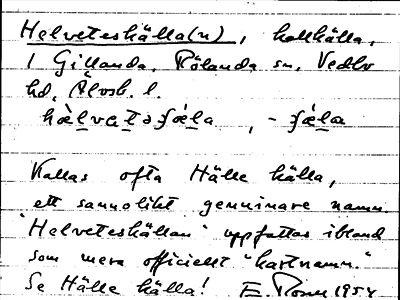 Helveteskälla(n), kallkälla,
1 Gillanda, Rölanda sn, Vedbo
hd, Älvsb. l.
hæ̀lvətəsɟæ̀la, -ɟæ̀la
Kallas ofta Hälle källa,
ett sannolikt genuinare namn.
"Helveteskällan" uppfattas ibland
som mera officiellt "kartnamn."
Se Hälle källa! E. 1954